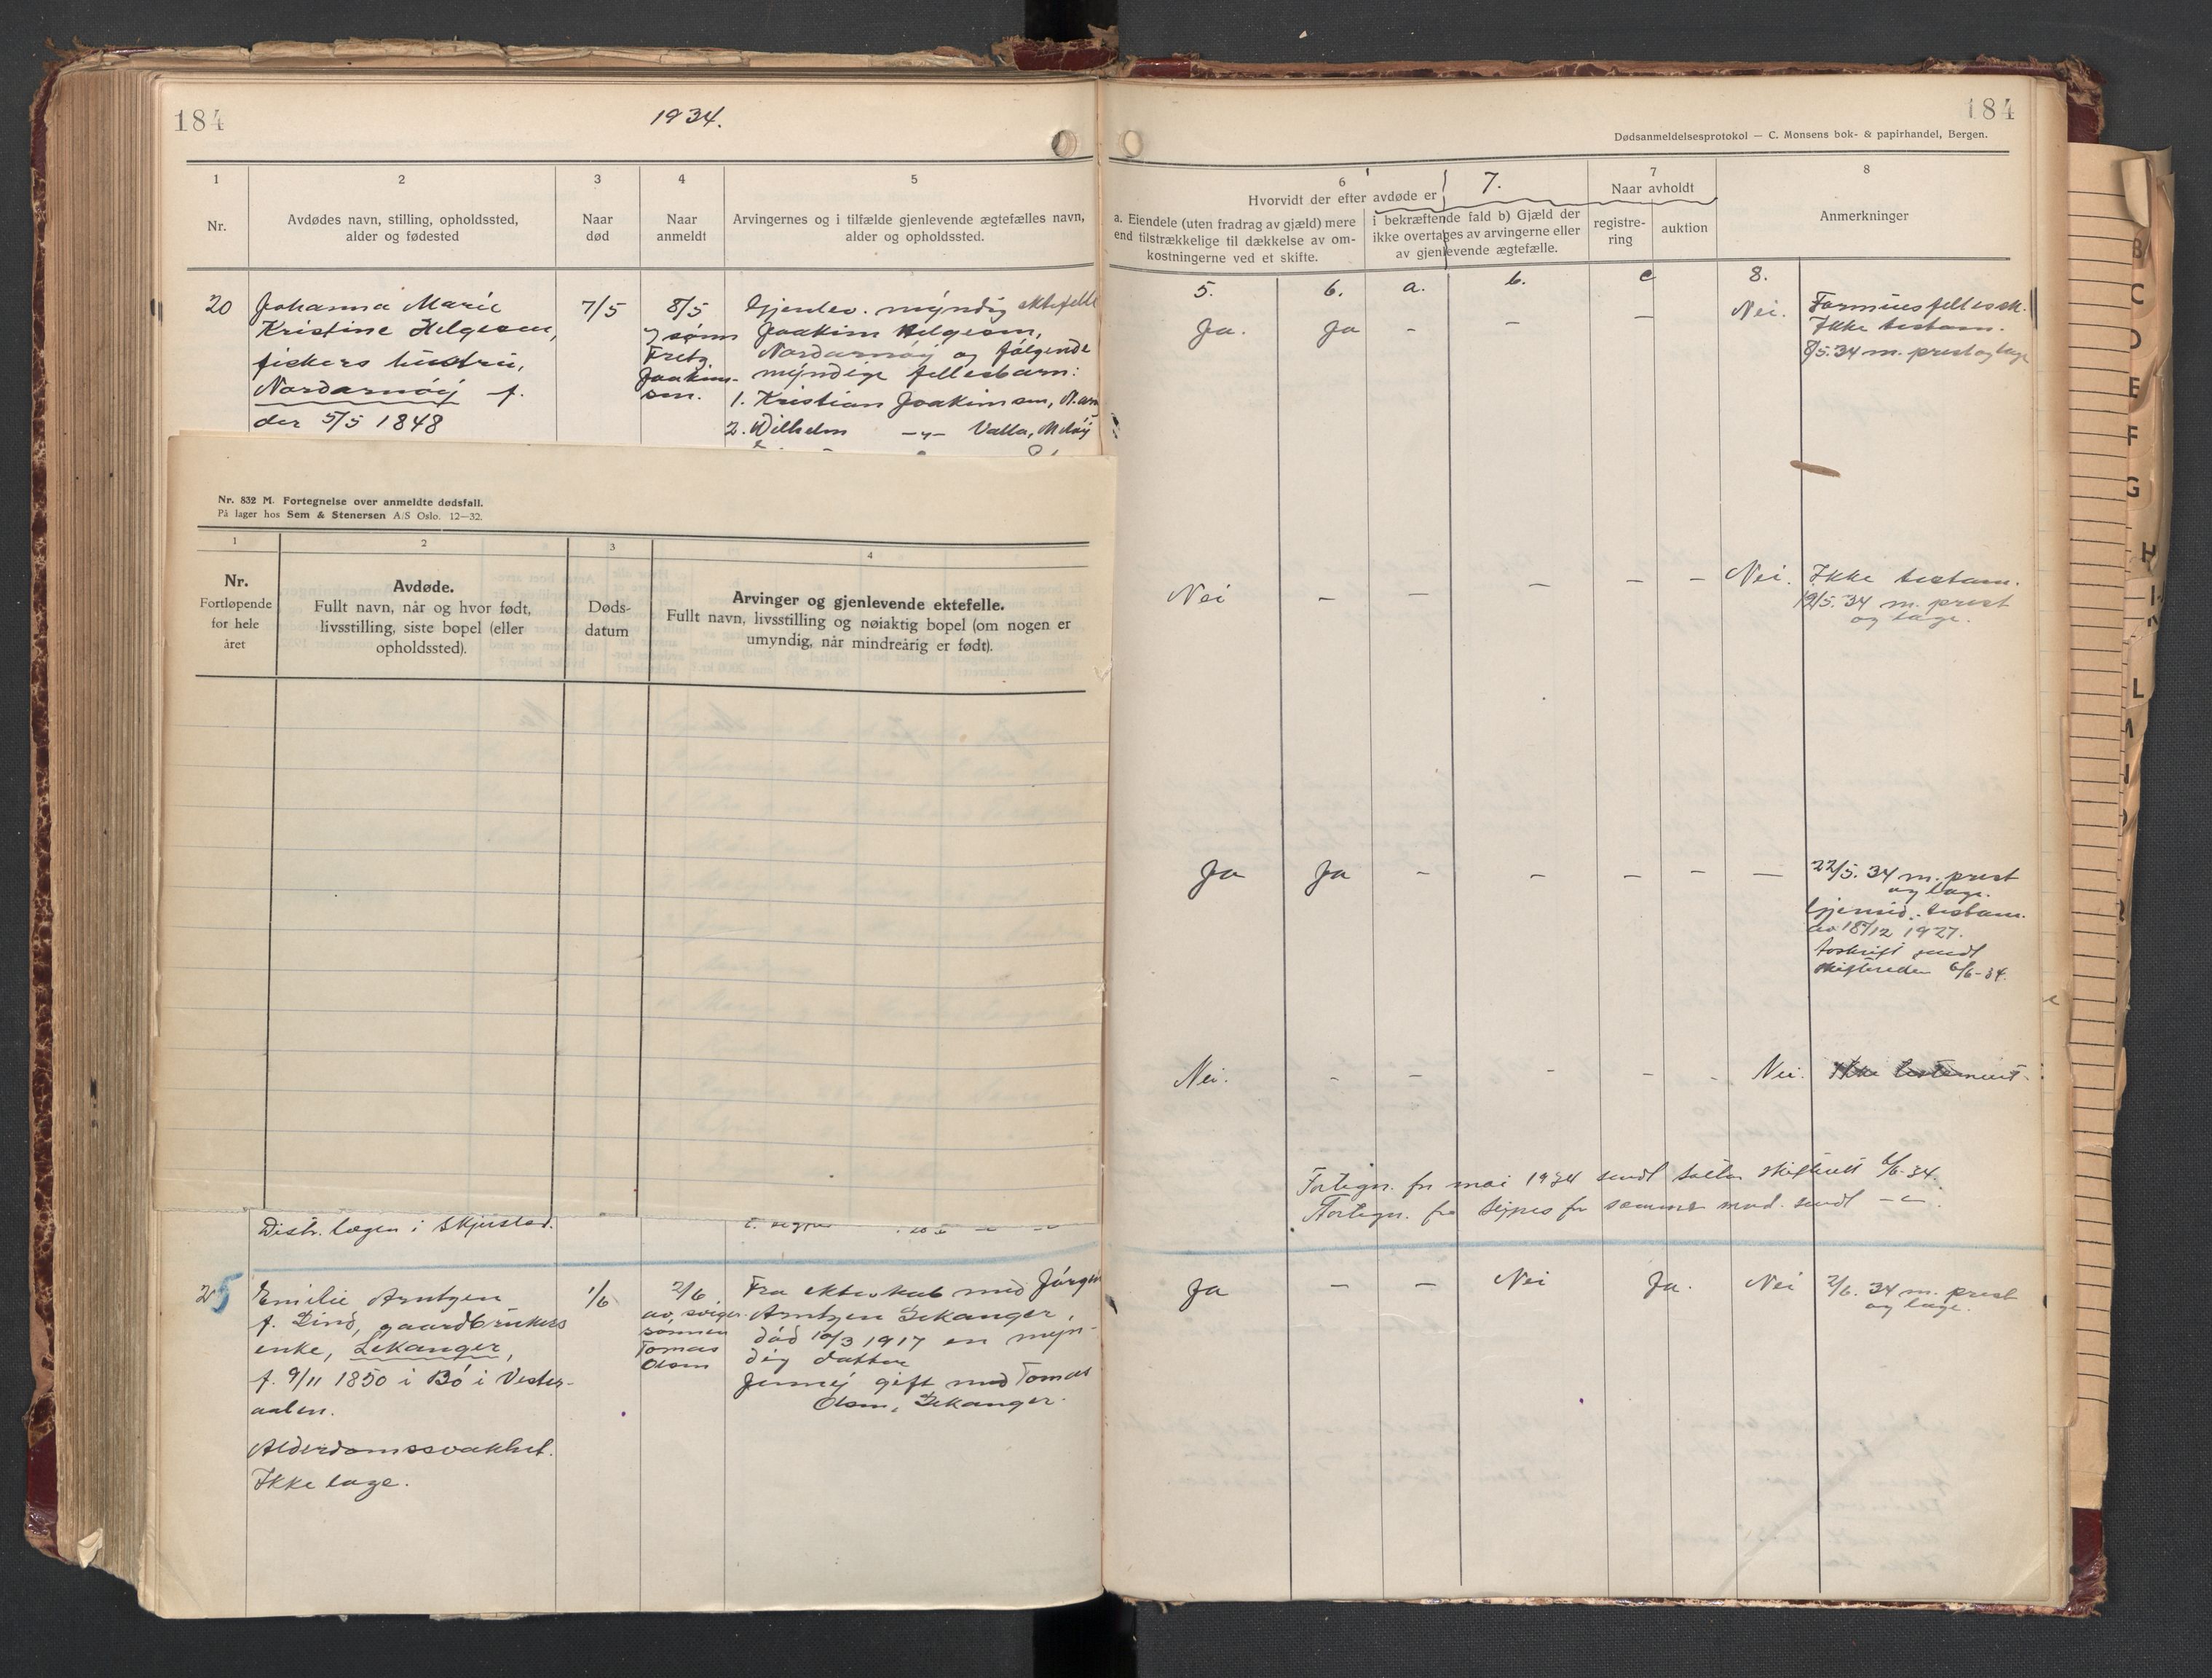 184
1934.
1
2
3
4
5
Nr.
Avdødes navn, stilling, opholdssted,
alder og fødested
Naar
død
Naar
anmeldt
Arvingernes og i tilfælde gjenlevende ægtefælles navn,
alder og opholdssted.
20
Johanna Marie
Kristine Helgesen,
fiskers hustru,
Nordarnöij f.
der 5/5 1848
7/5
8/5
sönn
Fretz
Joakim-
sen.
Gjenlev. myndig ektefelle
Joakim Helgesen,
Nordarnöij og fölgende
myndige fellesbarn:
1. Kristian Joakimsen, N.arn
2. Wilhelm —„— Valla, Melöij
Nr. 832 M. Fortegnelse over anmeldte dødsfall.
På lager hos Sem & Stenersen A/S Oslo. 12—32.
1
2
3
4
Nr.
Fortløpende
for hele
året
Avdøde.
Fullt navn, når og hvor født,
livsstilling, siste bopel (eller
opholdssted).
Døds-
datum
Arvinger og gjenlevende ektefelle.
Fullt navn, livsstilling og nøiaktig bopel (om nogen er
umyndig, når mindreårig er født).
Distr. lægen i Skjerstad.
25
Emilie Arntzen
f. Lind, gaardbrukers
enke, Lekanger,
f. 9/11 1850 i Bö i Vester-
aalen.
Alderdomssvakhet.
Ikke læge.
1/6
2/6
av sviger-
sönnen
Tomas
Olsen
Fra ekteskab med Jörgen
Arntzen Lekanger,
död 10/3 1917 en myn-
dig datter
Jennij gift med Tomas
Olsen, Lekanger.
184
Dødsanmeldelsesprotokol — C. Monsens bok- & papirhandel, Bergen.
6
7.
7
8
Hvorvidt der efter avdøde er
Naar avholdt
a. Eiendele (uten fradrag av gjæld) mere
end tilstrækkelige til dækkelse av om-
kostningerne ved et skifte.
i bekræftende fald b) Gjæld der
ikke overtages av arvingerne eller
av gjenlevende ægtefælle.
registre-
ring
auktion
Anmerkninger
5.
6.
a.
b.
c
8.
Ja.
Ja
-
-
-
Nei.
Formuesfellessk.
Ikke testam.
8/5.34 m. prest og læge
Nei
-
-
-
-
-
Nei.
Ikke testam.
12/5.34 m. prest
og læge.
Ja
Ja
-
-
-
-
-
22/5.34 m. prest
og læge.
Gjensid. testam.
av 18/12 1927.
Avskrift sendt
skifteretten 6/6-34.
Nei.
-
-
-
-
-
Nei.
Ikke testament.
Fortegn. for mai 1934 sendt Salten skifterett 6/6-34.
Fortegn. fra for samme mnd. sendt -„-
Ja
-
-
Nei
Ja.
Nei
2/6.34 m. prest
og læge.